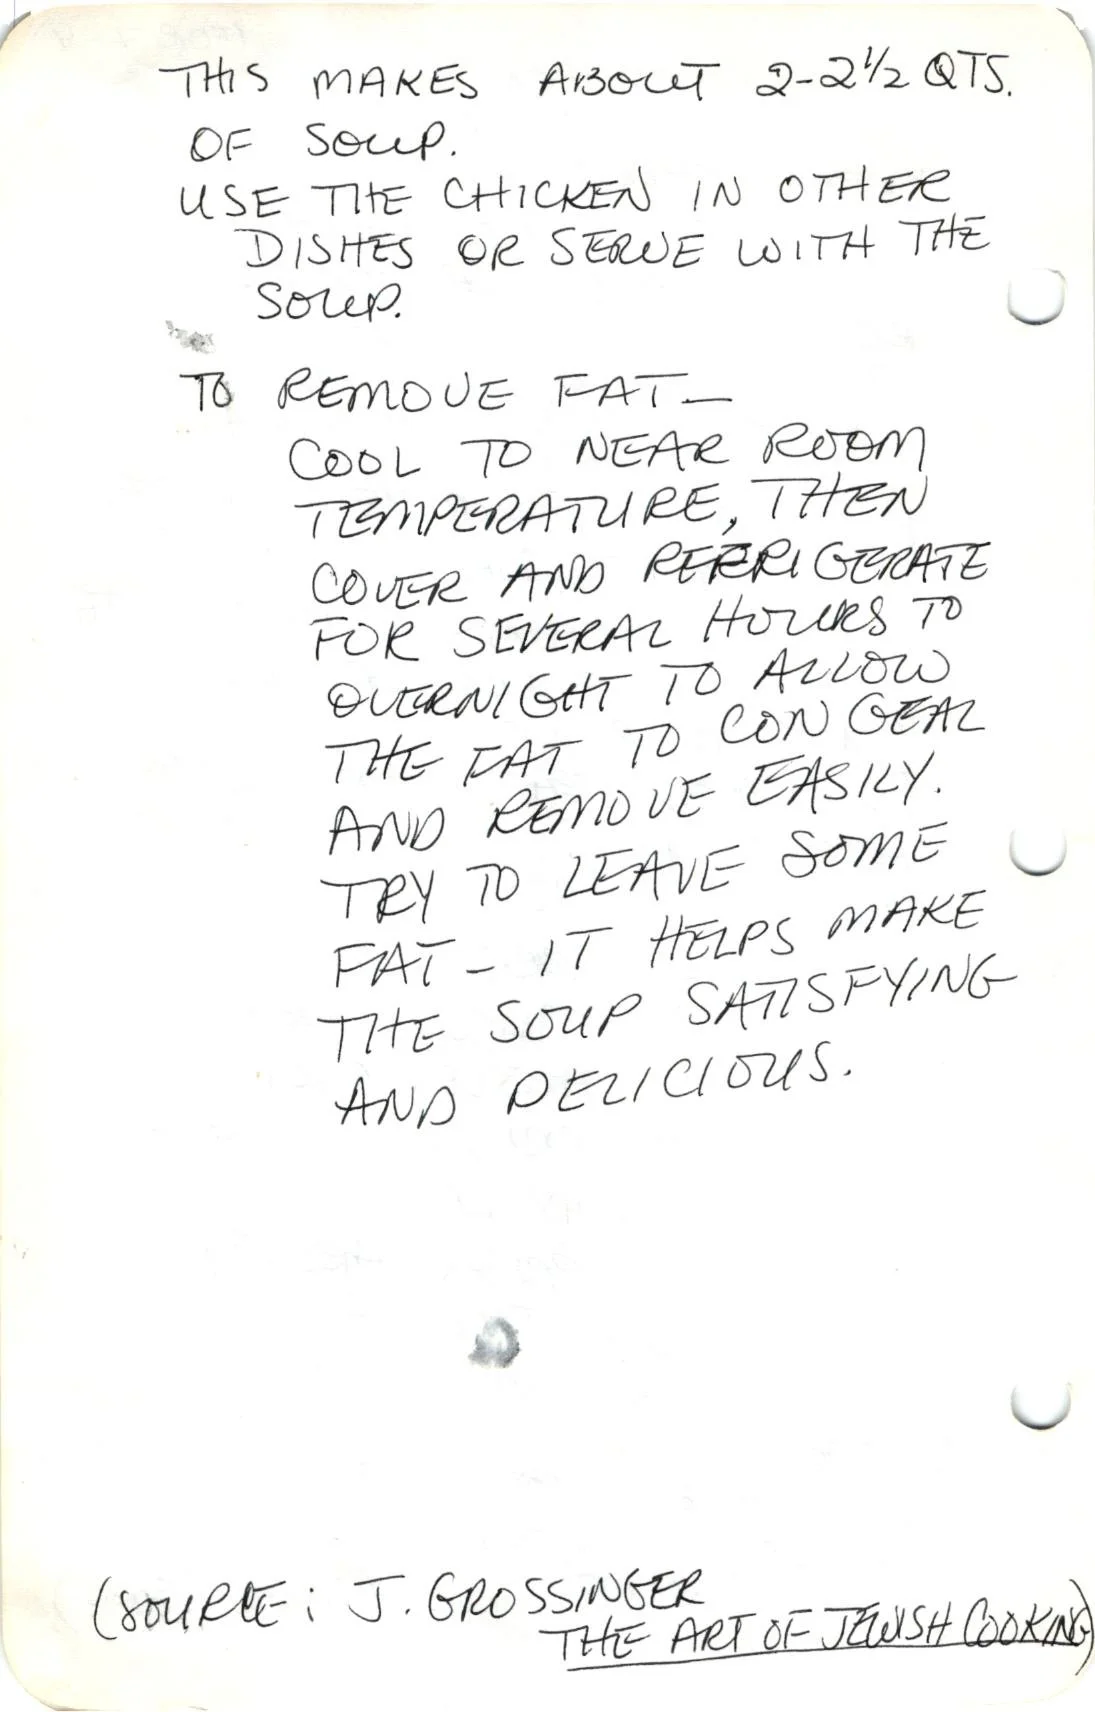 THIS MAKES ABOUT 2-2½ QTS.
OF SOUP.
USE THE CHICKEN IN OTHER
DISHES OR SERVE WITH THE
SOUP.
TO REMOVE FAT—
COOL TO NEAR ROOM
TEMPERATURE, THEN
COVER AND REFRIGERATE
FOR SEVERAL HOURS TO
OVERNIGHT TO ALLOW
THE FAT TO CONGEAL
AND REMOVE EASILY.
TRY TO LEAVE SOME
FAT - IT HELPS MAKE
THE SOUP SATISFYING
AND DELICIOUS.
(SOURCE: J. GROSSINGER
THE ART OF JEWISH COOKING)